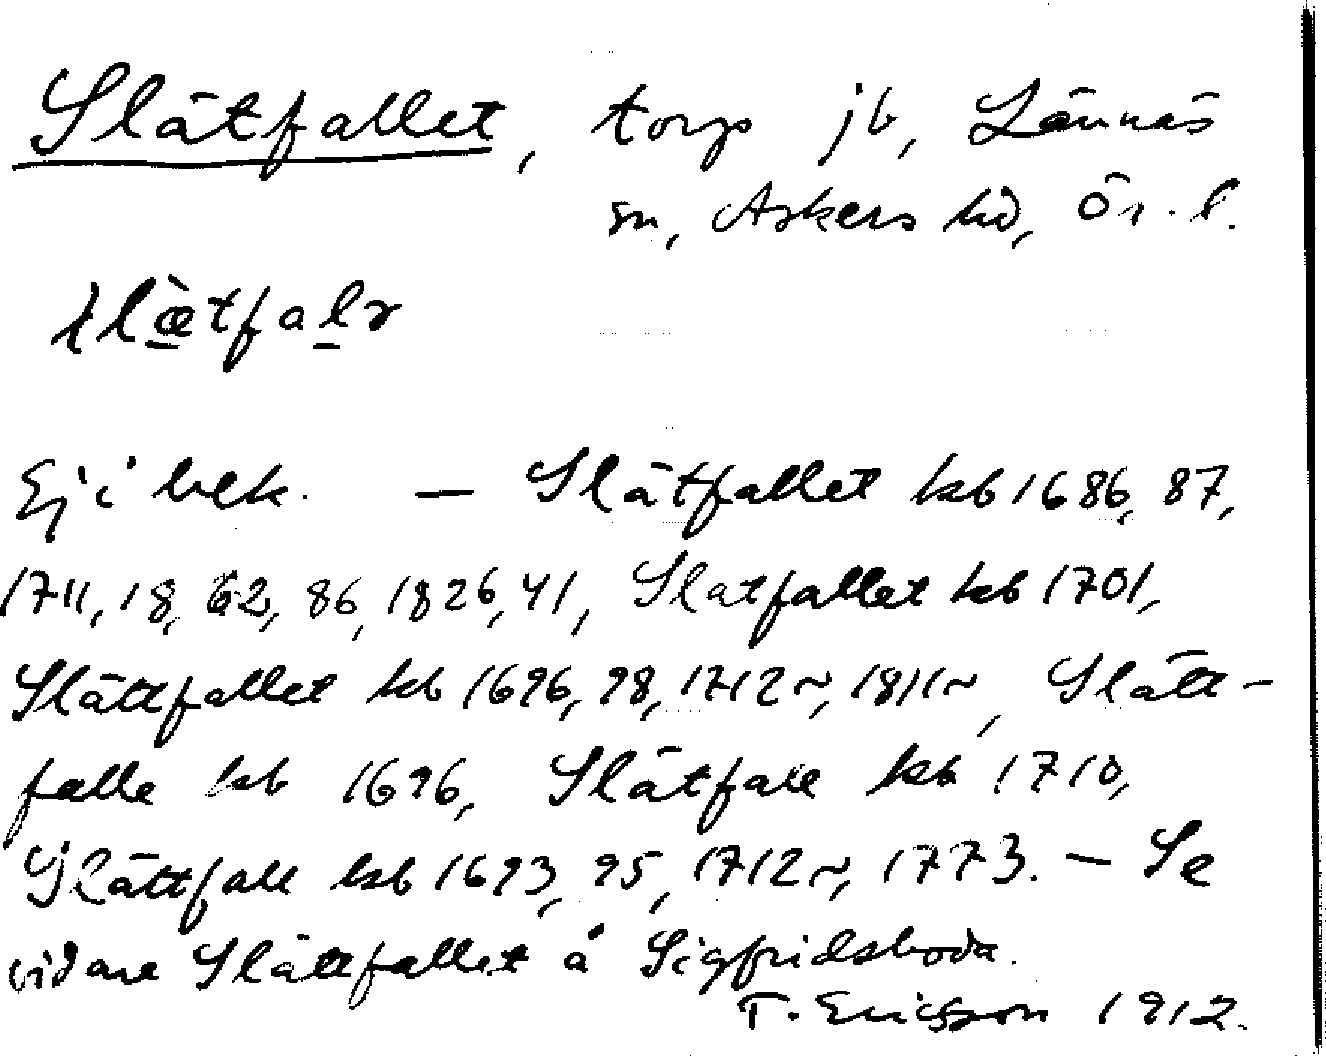 Slätfallet, torp jb, Lännäs
sn, Askers hd, Ör. l.
slæ̀tfalɤ
Ej i bebk. — Slätfallet kb 1686, 87,
1711, 18, 62, 86, 1826, 41, Slatfallet kb 1701,
Slättfallet kb 1696, 98, 1712~, 1811~, Slätt-
falle kb 1696, Slätfall kb 1710,
Slättfall kb 1693, 95, 1712~, 1773. — Se
vidare Slättfallet å Sigfridsboda.
T. Ericsson 1912.